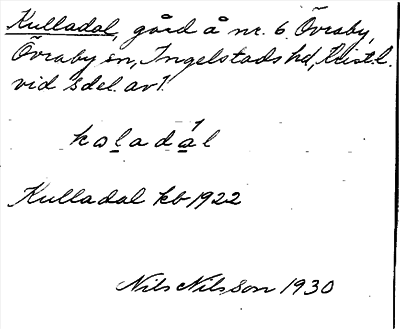 Kulladal, gård å nr. 6 Övraby,
Övraby sn, Ingelstads hd, Krist.l.
vid sdel. av 1.
kaladál
Kulladal kb 1922
Nils Nilsson 1930